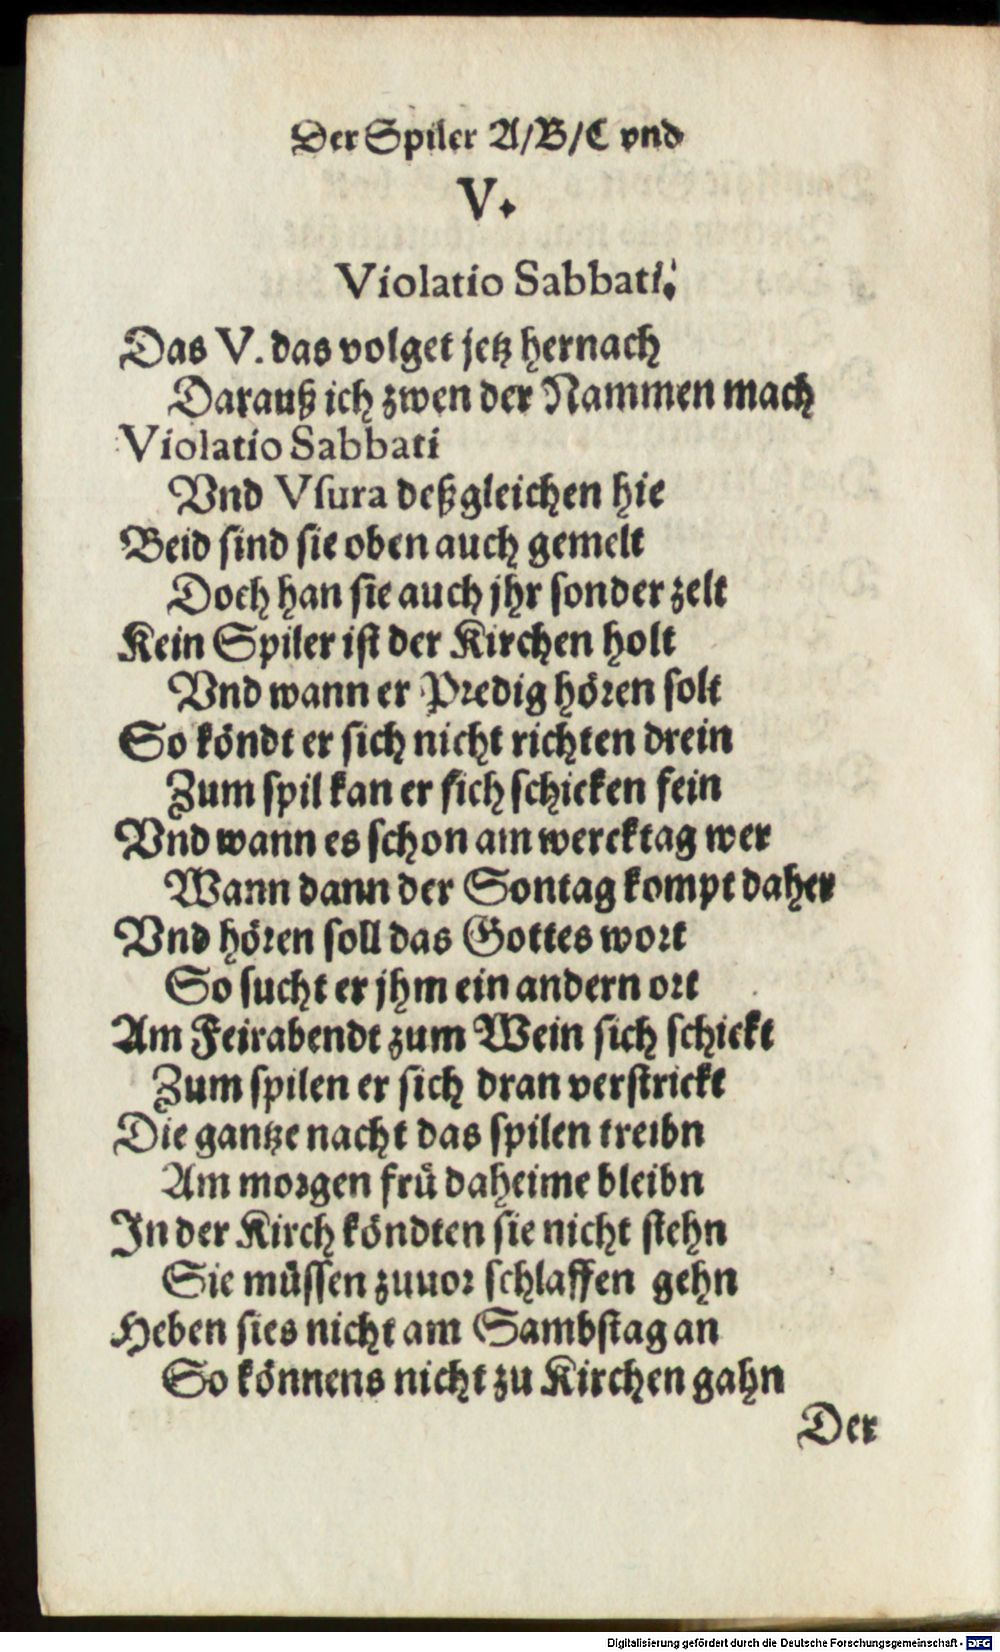 Der Spiler A/B/C vnd
V.
Violatio Sabbati.
Das V. das volget jetz hernach
Darauß ich zwen der Nammen mach
Violatio Sabbati
Vnd Vſura deßgleichen hie
Beid ſind ſie oben auch gemelt
Doch han ſie auch jhr ſonder zelt
Kein Spiler iſt der Kirchen holt
Vnd wann er Predig hören ſolt
So köndt er ſich nicht richten drein
Zum ſpil kan er ſich ſchicken fein
Vnd wann es ſchon am wercktag wer
Wann dann der Sontag kompt daher
Vnd hören ſoll das Gottes wort
So ſucht er jhm ein andern ort
Am Feirabendt zum Wein ſich ſchickt
Zum ſpilen er ſich dran verſtrickt
Die gantze nacht das ſpilen treibn
Am morgen frü daheime bleibn
In der Kirch köndten ſie nicht ſtehn
Sie müſſen zuuor ſchlaffen gehn
Heben ſies nicht am Sambſtag an
So könnens nicht zu Kirchen gahn
Der
Digitalisierung gefördert durch die Deutsche Forschungsgemeinschaft - DFG